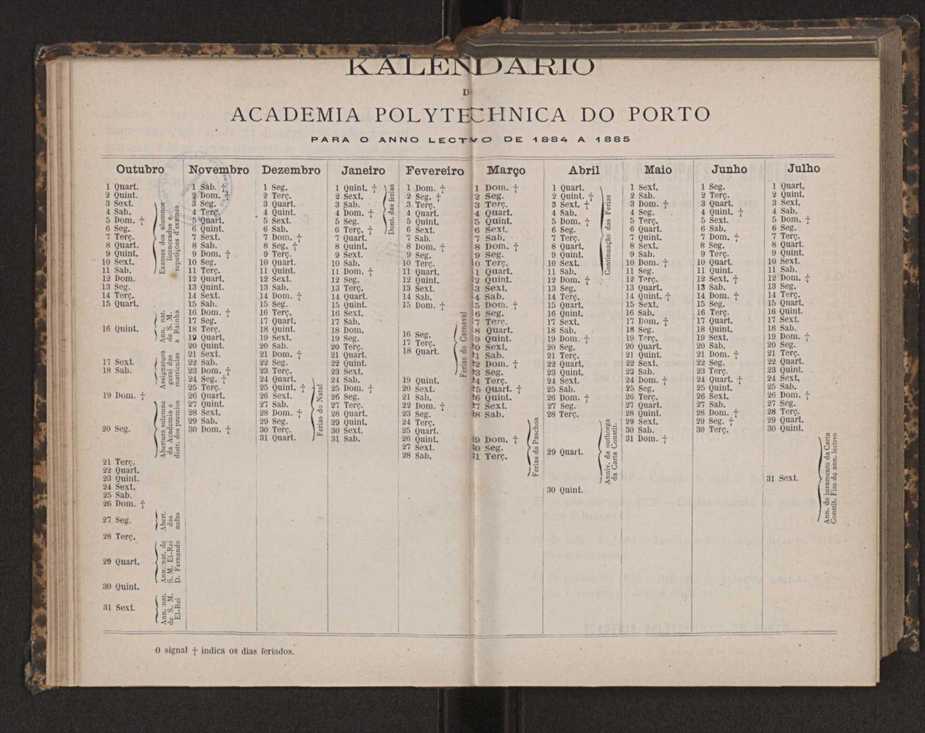 KALENDARIO
D
ACADEMIA POLYTECHNICA DO PORTO
PARA O ANNO LECTIVO DE 1884 A 1885
Outubro
1 Quart.
2 Quint.
3 Sext.
4 Sab.
5 Dom. †
6 Seg.
7 Terç.
8 Quart.
9 Quint.
10 Sext.
11 Sab.
12 Dom.
13 Seg.
14 Terç.
15 Quart.
Exames dos alumnos
licenceados e
repetições d'exames
16 Quint.
Ann. nat.
de S. M.
a Rainha
17 Sext.
18 Sab.
Assignatura
geral das
matriculas
19 Dom. †
20 Seg.
Abertura solemne
da Academia e
distr. dos premios
21 Terç.
22 Quart.
23 Quint.
24 Sext.
25 Sab.
26 Dom. †
27 Seg.
Abert.
das
aulas
28 Terç.
29 Quart.
Ann. nat. de
S. M. El-Rei
D. Fernando
30 Quint.
31 Sext.
Ann. nat.
de S. M.
El-Rei
Novembro
1 Sab. †
2 Dom. †
3 Seg.
4 Terç.
5 Quart.
6 Quint.
7 Sext.
8 Sab.
9 Dom. †
10 Seg.
11 Terç.
12 Quart.
13 Quint.
14 Sext.
15 Sab.
16 Dom. †
17 Seg.
18 Terç.
19 Quart.
20 Quint.
21 Sext.
22 Sab.
23 Dom. †
24 Seg. †
25 Terç.
26 Quart.
27 Quint.
28 Sext.
29 Sab.
30 Dom. †
Dezembro
1 Seg.
2 Terç.
3 Quart.
4 Quint.
5 Sext.
6 Sab.
7 Dom. †
8 Seg. †
9 Terç.
10 Quart.
11 Quint.
12 Sext.
13 Sab.
14 Dom. †
15 Seg.
16 Terç.
17 Quart.
18 Quint.
19 Sext.
20 Sab.
21 Dom. †
22 Seg.
23 Terç.
24 Quart.
25 Quint. †
26 Sext.
27 Sab.
28 Dom. †
29 Seg.
30 Terç.
31 Quart.
Ferias do Natal
Janeiro
1 Quint. †
2 Sext.
3 Sab.
4 Dom. †
5 Seg.
6 Terç. †
7 Quart.
8 Quint.
9 Sext.
10 Sab.
11 Dom. †
12 Seg.
13 Terç.
14 Quart.
15 Quint.
16 Sext.
17 Sab.
18 Dom.
19 Seg.
20 Terç.
21 Quart.
22 Quint.
23 Sext.
24 Sab.
25 Dom. †
26 Seg.
27 Terç.
28 Quart.
29 Quint.
30 Sext.
31 Sab.
das ferias
Fevereiro
1 Dom. †
2 Seg. †
3 Terç.
4 Quart.
5 Quint.
6 Sext.
7 Sab.
8 Dom. †
9 Seg.
10 Terç.
11 Quart.
12 Quint.
13 Sext.
14 Sab.
15 Dom. †
16 Seg.
17 Terç.
18 Quart.
Ferias do Carnaval
19 Quint.
20 Sext.
21 Sab.
22 Dom. †
23 Seg.
24 Terç.
25 Quart.
26 Quint.
27 Sext.
28 Sab.
Março
1 Dom. †
2 Seg.
3 Terç.
4 Quart.
5 Quint.
6 Sext.
7 Sab.
8 Dom. †
9 Seg.
10 Terç.
1 Quart.
2 Quint.
3 Sext.
4 Sab.
5 Dom. †
6 Seg.
7 Terç.
8 Quart.
9 Quint.
20 Sext.
21 Sab.
22 Dom. †
23 Seg.
24 Terç.
25 Quart. †
26 Quint.
27 Sext.
28 Sab.
29 Dom. †
30 Seg.
31 Terç.
Ferias da Paschoa
Abril
1 Quart.
2 Quint. †
3 Sext. †
4 Sab.
5 Dom. †
6 Seg.
7 Terç.
8 Quart.
9 Quint.
10 Sext.
11 Sab.
12 Dom. †
13 Seg.
14 Terç.
15 Quart.
16 Quint.
17 Sext.
18 Sab.
19 Dom. †
20 Seg.
21 Terç.
22 Quart.
23 Quint.
24 Sext.
25 Sab.
26 Dom. †
27 Seg.
28 Terç.
Continuação das Ferias
29 Quart.
Anniv. da outorga
da Carta Constit.
30 Quint.
Maio
1 Sext.
2 Sab.
3 Dom. †
4 Seg.
5 Terç.
6 Quart.
7 Quint.
8 Sext.
9 Sab.
10 Dom. †
11 Seg.
12 Terç.
13 Quart.
14 Quint. †
15 Sext.
16 Sab.
17 Dom. †
18 Seg.
19 Terç.
20 Quart.
21 Quint.
22 Sext.
23 Sab.
24 Dom. †
25 Seg.
26 Terç.
27 Quart.
28 Quint.
29 Sext.
30 Sab.
31 Dom. †
Junho
1 Seg.
2 Terç.
3 Quart.
4 Quint. †
5 Sext.
6 Sab.
7 Dom. †
8 Seg.
9 Terç.
10 Quart.
11 Quint.
12 Sext.
13 Sab.
14 Dom. †
15 Seg.
16 Terç.
17 Quart.
18 Quint.
19 Sext.
20 Sab.
21 Dom. †
22 Seg.
23 Terç.
24 Quart. †
25 Quint.
26 Sext.
27 Sab.
28 Dom. †
29 Seg. †
30 Terç.
Julho
1 Quart.
2 Quint.
3 Sext.
4 Sab.
5 Dom. †
6 Seg.
7 Terç.
8 Quart.
9 Quint.
10 Sext.
11 Sab.
12 Dom. †
13 Seg.
14 Terç.
15 Quart.
16 Quint.
17 Sext.
18 Sab.
19 Dom. †
20 Seg.
21 Terç.
22 Quart.
23 Quint.
24 Sext.
25 Sab.
26 Dom. †
27 Seg.
28 Terç.
29 Quart.
30 Quint.
31 Sext.
Ann. do juramento da Carta
Constit. Fim do ann. lectivo
O signal † indica os dias feriados.